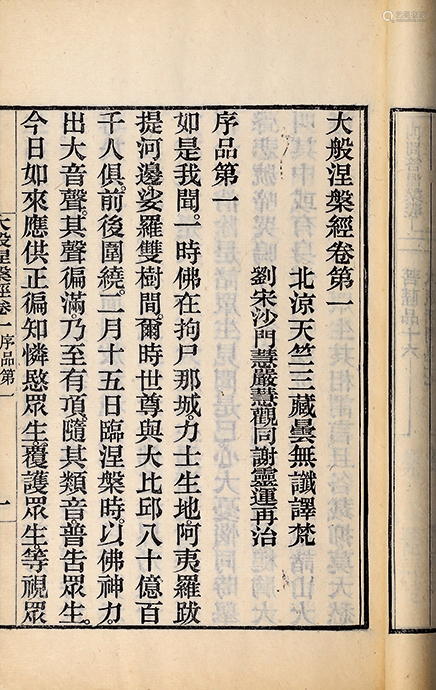 大般涅槃經卷第一
北涼天竺三藏曇無讖譯梵
劉宋沙門慧嚴慧觀同謝靈運再治
序品第一
如是我聞。一時佛在拘尸那城。力士生地。阿夷羅跋
提河邊娑羅雙樹間。爾時世尊與大比邱八十億百
千人俱。前後圍繞。二月十五日臨涅槃時。以佛神力。
出大音聲。其聲徧滿。乃至有頂。隨其類音。普告眾生。
今日如來應供正徧知憐愍眾生。覆護眾生。等視眾
大般涅槃經卷一 序品第一
一